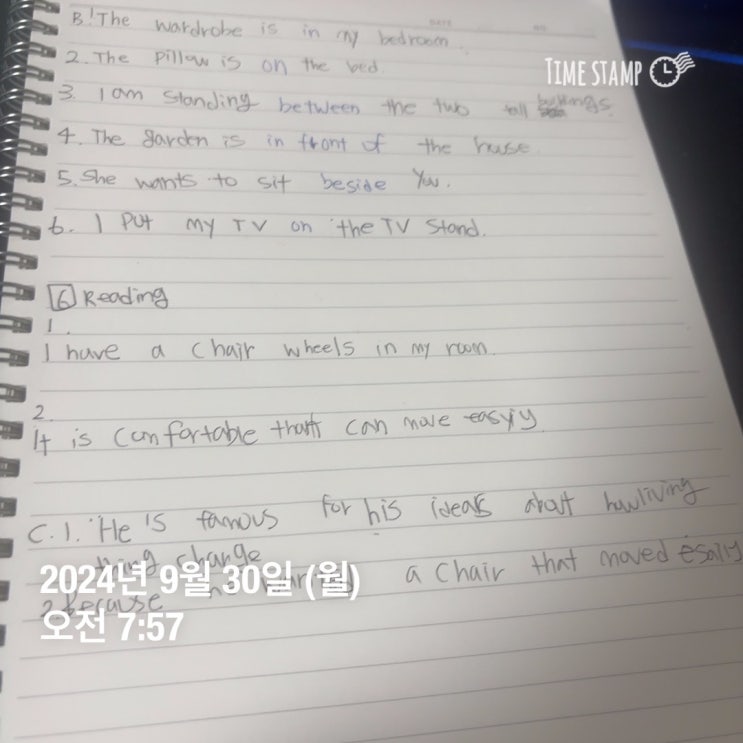 DATE
NO
B!The wardrobe is in my bedroom.
2. The pillow is on the bed.
3. I am standing between the two tall buildings.
4. The garden is in front of the house.
5. She wants to sit beside you.
6. I put my TV on the TV stand.
6 Reading
1.
I have a chair wheels in my room.
2.
It is comfortable that can move easyiy
C. 1. He is famous for his ideas about how living
thing change
2 Because he a chair that moved esaily
TIME STAMP
2024년 9월 30일 (월)
오전 7:57